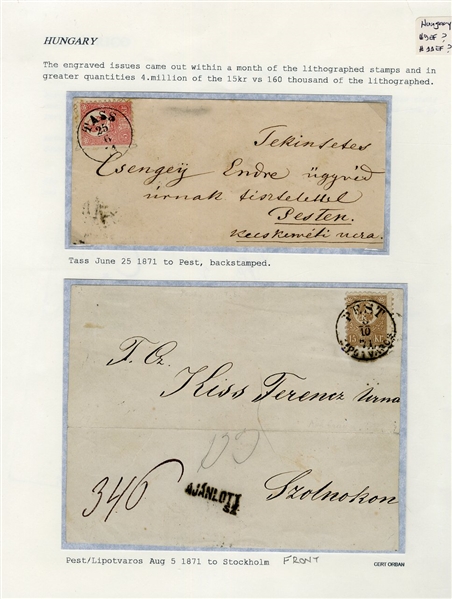 HUNGARY
Hungary
The engraved issues came out within a month of the lithographed stamps and in
greater quantities 4.million of the 15kr vs 160 thousand of the lithographed.
TASS
25
6
Tekintetes
Csengeÿ Endre ügyvéd
úrnak tisztelettel
Pesten.
Kecskeméti ucza.
Tass June 25 1871 to Pest, backstamped.
PEST
10
LIPOTVAROS
15 KR
T. Cz.
Kiss Ferencz Urna
346
AJÁNLOTT
Szolnokon
Pest/Lipotvaros Aug 5 1871 to Stockholm FRONT
GERT ORBAN